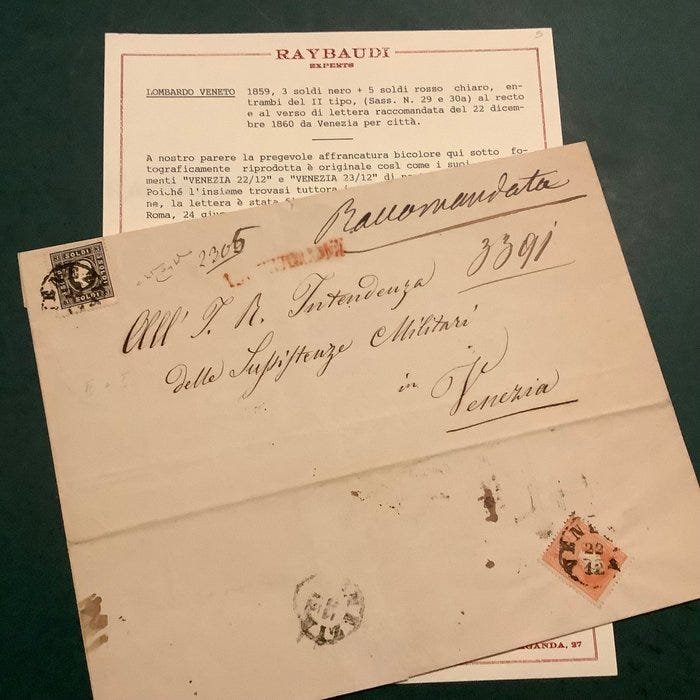 RAYBAUDI
EXPERTS
LOMBARDO VENETO 1859, 3 soldi nero + 5 soldi rosso chiaro, en-
trambi del II tipo, (Sass. N. 29 e 30a) al recto
e al verso di lettera raccomandata del 22 dicem-
bre 1860 da Venezia per città.
A nostro parere la pregevole affrancatura bicolore qui sotto fo-
tograficamente riprodotta è originale così come i suoi
menti "VENEZIA 22/12" e "VENEZIA 23/12" di
Poiché l'insieme trovasi tuttora
ne, la lettera è stata
Roma, 24
Raccomandata
2305
3391
SOLDI
SOLDI
All' I. R. Intendenza
delle Sussistenze Militari
in Venezia
VENEZIA
22
12
VENEZIA
GANDA, 27